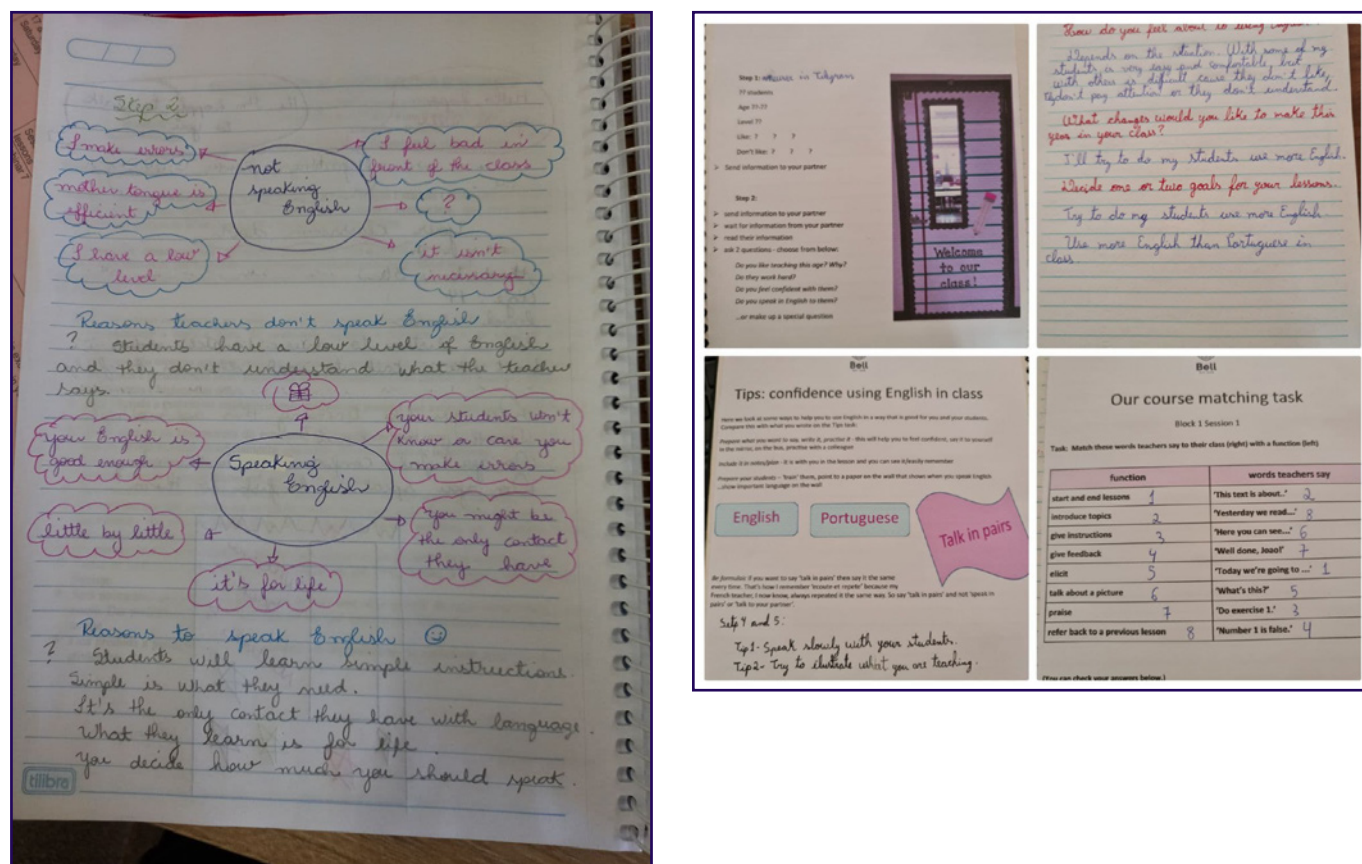 Step 2
I make errors
I feel bad in
front of the class
not
speaking
English
mother tongue is
efficient
?
I have a low
level
it isn't
necissary
Reasons teachers don't speak English
? Students have a low level of English
and they don't understand what the teacher
says.
your English is
good enough
your students won't
know or care you
make errors
Speaking
English
little by little
you might be
the only contact
they have
it's for life
Reasons to speak English
? Students will learn simple instructions.
Simple is what they need.
It's the only contact they have with language.
What they learn is for life.
you decide how much you should speak.
tilibra
Step 1: in Telegram
?? students
Age ??-??
Level ??
Like: ? ? ?
Don't like: ? ? ?
Send information to your partner
Step 2:
send information to your partner
wait for information from your partner
read their information
ask 2 questions - choose from below:
Do you like teaching this age? Why?
Do they work hard?
Do you feel confident with them?
Do you speak in English to them?
...or make up a special question
Welcome
to our
class!
How do you feel about
Depends on the situation. With some of my
students is very easy and comfortable, but
with others is dificult cause they don't like,
don't pay attention or they don't understand.
What changes would you like to make this
year in your class?
I'll try to do my students use more English.
Decide one or two goals for your lessons.
Try to do my students use more English
Use more English than Portuguese in
class.
Bell
Tips: confidence using English in class
Here we look at some ways to help you to use English in a way that is good for you and your students.
Compare this with what you wrote on the Tips task:
Prepare what you want to say, write it, practise it - this will help you to feel confident, say it to yourself
in the mirror, on the bus, practise with a colleague
Include it in notes/plan - it is with you in the lesson and you can see it/easily remember
Prepare your students - 'train' them, point to a paper on the wall that shows when you speak English
...show important language on the wall
English
Portuguese
Talk in pairs
Be formulaic: if you want to say 'talk in pairs' then say it the same
every time. That's how I remember 'ecoute et repete' because my
French teacher, I now know, always repeated it the same way. So say 'talk in pairs' and not 'speak in
pairs' or 'talk to your partner'.
Setp 4 and 5:
Tip 1- Speak slowly with your students.
Tip 2- Try to ilustrate what you are teaching.
Bell
Our course matching task
Block 1 Session 1
Task: Match these words teachers say to their class (right) with a function (left)
function words teachers say
start and end lessons 1 'This text is about..' 2
introduce topics 2 'Yesterday we read...' 8
give instructions 3 'Here you can see...' 6
give feedback 4 'Well done, Joao!' 7
elicit 5 'Today we're going to ...' 1
talk about a picture 6 'What's this?' 5
praise 7 'Do exercise 1.' 3
refer back to a previous lesson 8 'Number 1 is false.' 4
(You can check your answers below.)